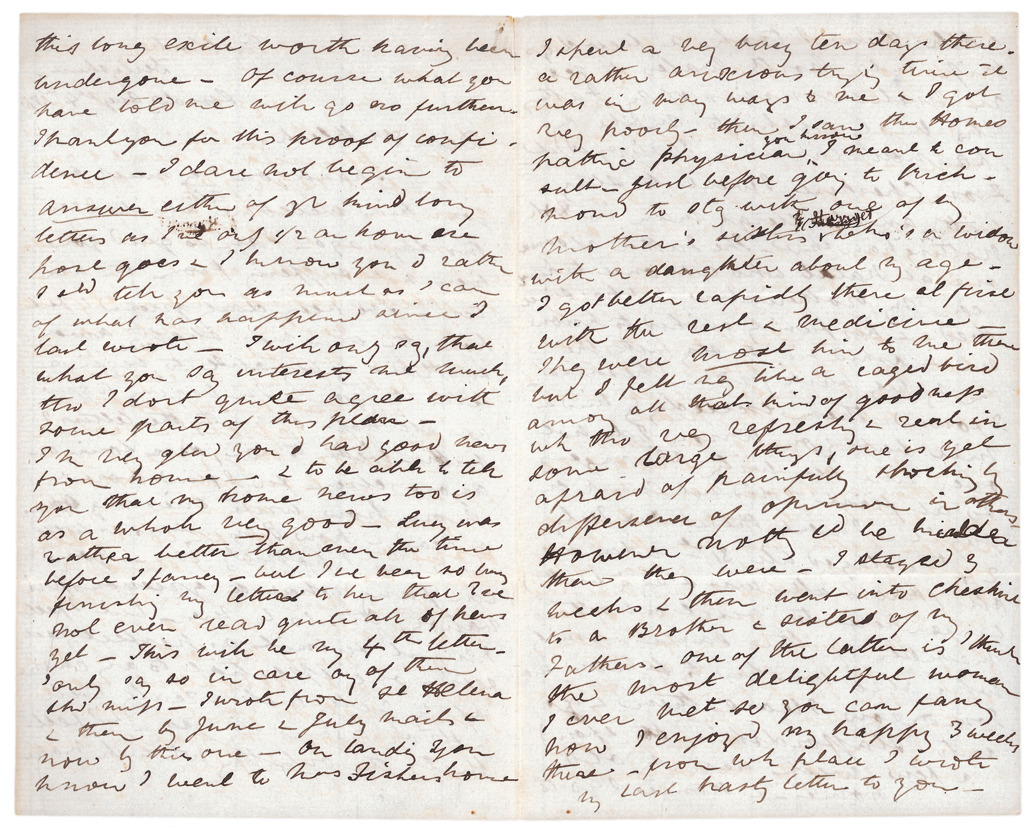 this long exile worth having been
undergone - Of course what you
have told me will go no further.
Thank you for this proof of confi-
dence - I dare not begin to
answer either of yr kind long
letters as I've only 1/2 an hour ere
post goes & I know you'd rather
I shd tell you as much as I can
of what has happened since I
last wrote - I will only say, that
what you say interests me much,
tho' I don't quite agree with
some parts of this plan -
I'm very glad you'd had good news
from home - & to be able to tell
you that my home news too is
as a whole very good - Lucy was
rather better than even the time
before I fancy - but I've been so busy
finishing my letters to her that I've
not even read quite all of news
yet - This will be my 4th letter -
I only say so in case any of them
shd miss - I wrote from St Helena
& then by June & July mails &
now by this one - On landing you
know I went to Fisher's home
I spent a very busy ten days there -
a rather anxious trying time it
was in many ways to me & I got
very poorly - then I saw the Homeo
you know
pathic physician, I meant to con
sult - just before going to Rich-
mond to stay with one of my
Harryet
mother's sisters, who's a widow
with a daughter about my age -
I got better rapidly there at first
with the rest & medicine -
They were most kind to me there
but I felt very like a caged bird
among all that kind of goodness
wh tho' very refreshing & real in
some large things, one is yet
afraid of painfully shocking by
difference of opinion in others
However nothg cd be kinder
than they were - I stayed 3
weeks & then went into Cheshire
to a Brother & sisters of my
Father's - one of the latter is I think
the most delightful woman
I ever met so you can fancy
how I enjoyed my happy 3 weeks
there - from wh place I wrote
my last hasty letter to you -